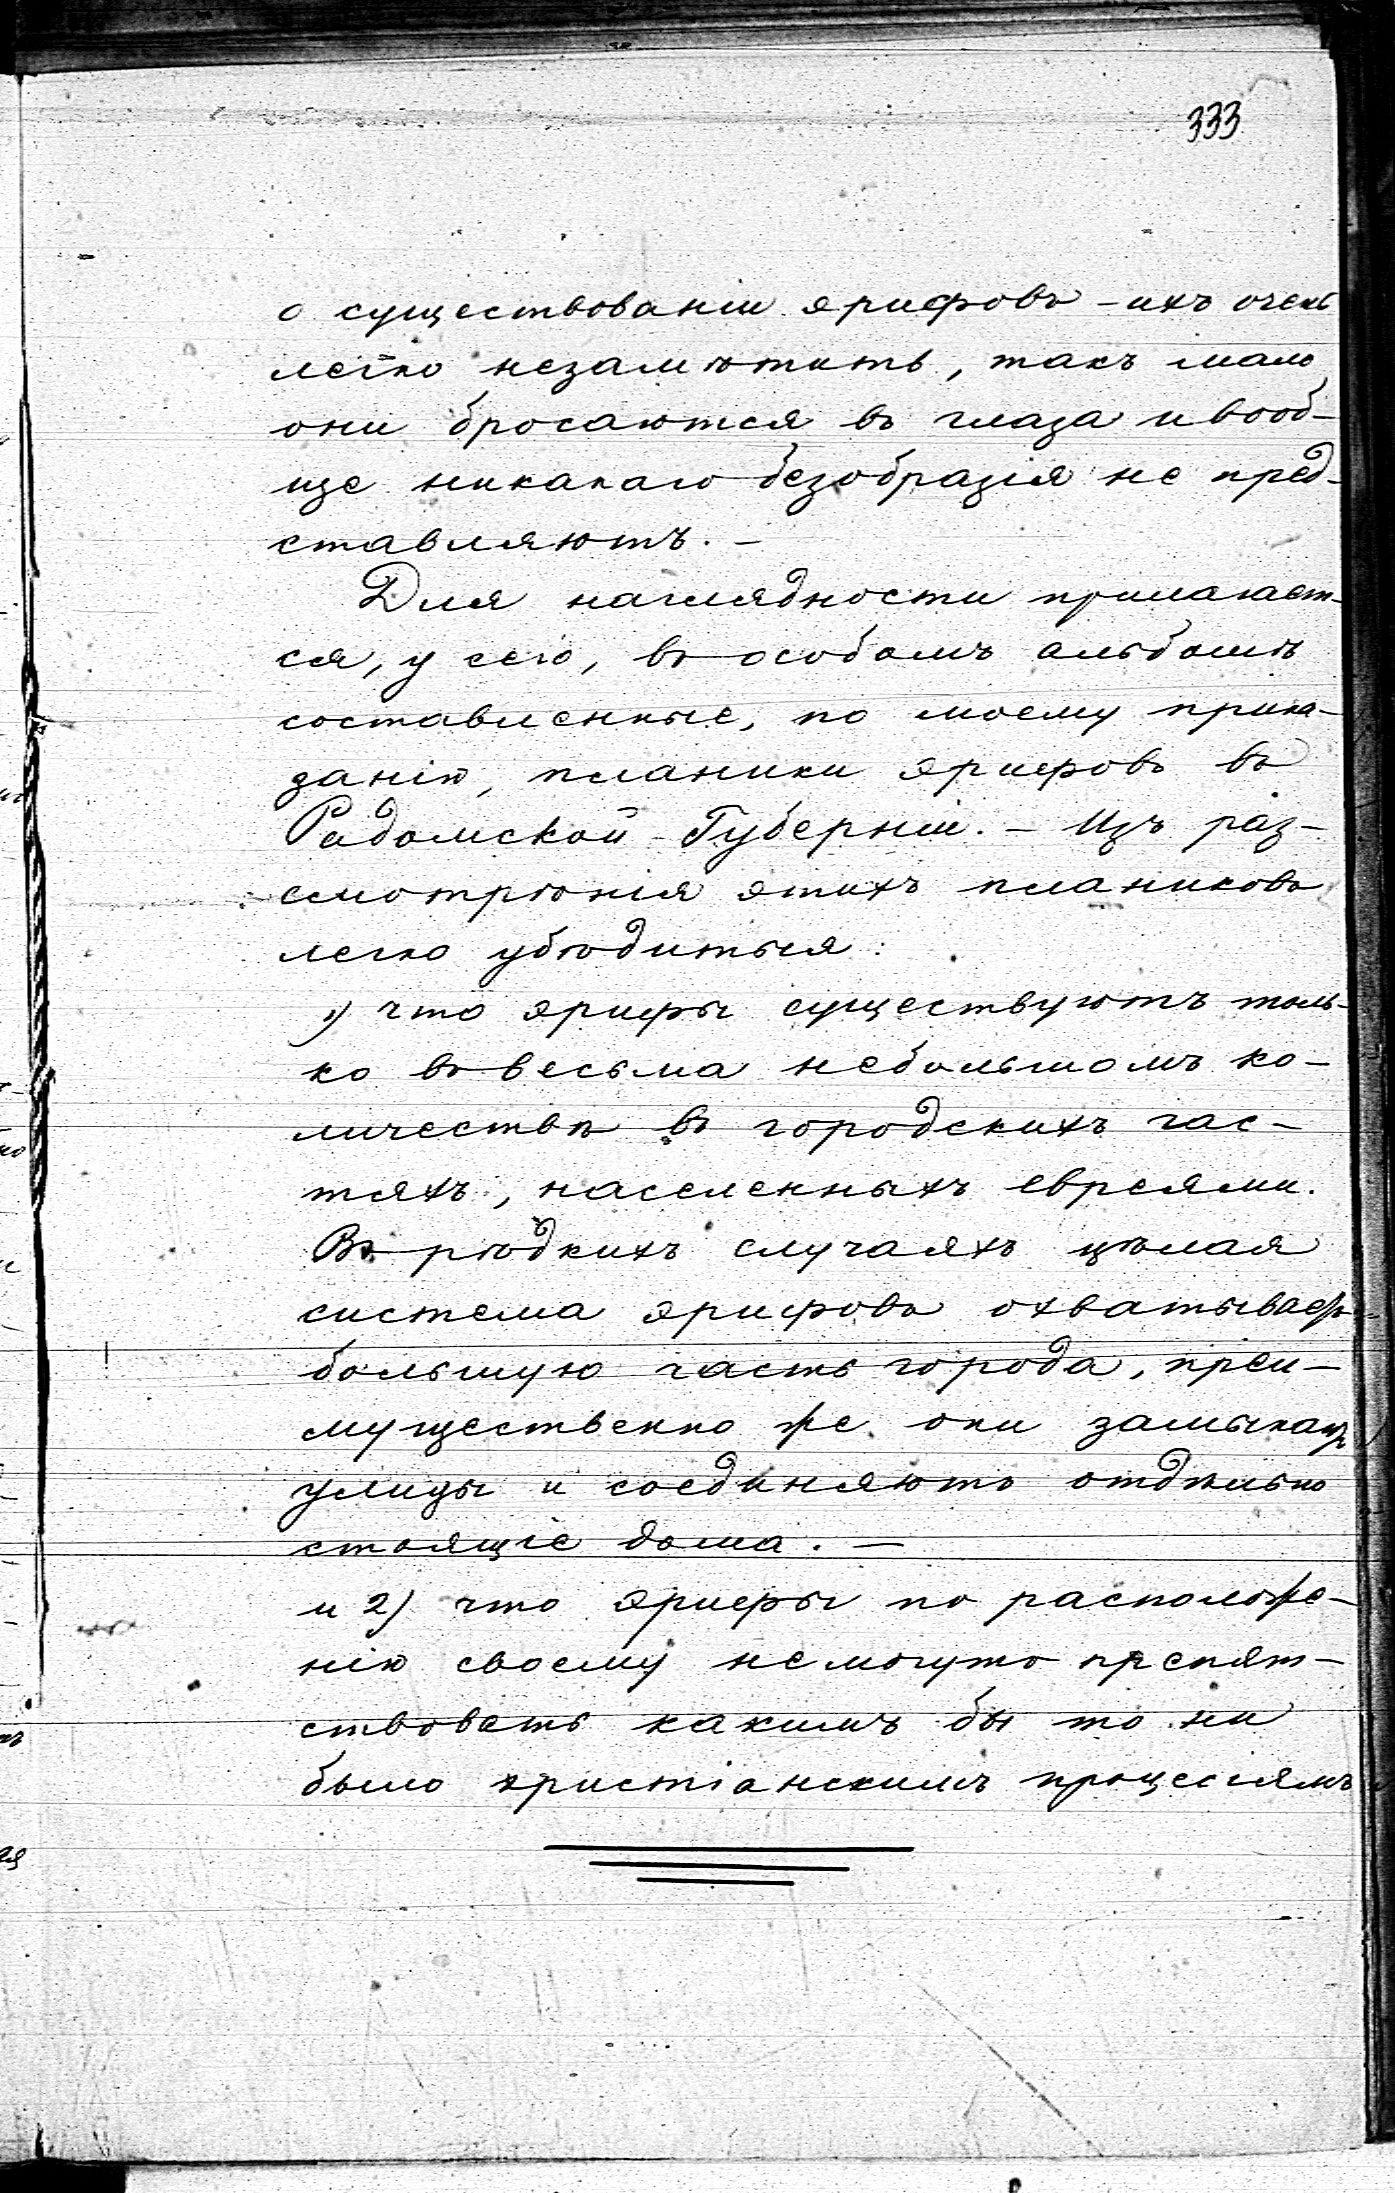 333
о существованіи эрифовъ - ихъ очень
легко незамѣтить, такъ мало
они бросаются въ глаза и вооб-
ще никакаго безобразія не пред-
ставляютъ. -
Для наглядности прилагает-
ся, у сего, въ особомъ альбомѣ
составленные, по моему прика-
занію, планики эрифовъ въ
Радомской Губерніи. - Изъ раз-
смотрѣнія этихъ планиковъ
легко убѣдиться:
1) что эрифы существуютъ толь-
ко въ весьма небольшомъ ко-
личествѣ въ городскихъ час-
тяхъ, населенныхъ евреями.
Въ рѣдкихъ случаяхъ цѣлая
система эрифовъ охватываетъ
большую часть города, преи-
мущественно же они замыкаютъ
улицы и соединяютъ отдѣльно
стоящіе дома. -
и 2) что эрифы по расположе-
нію своему не могутъ препят-
ствовать какимъ бы то ни
было христіанскимъ процессіямъ